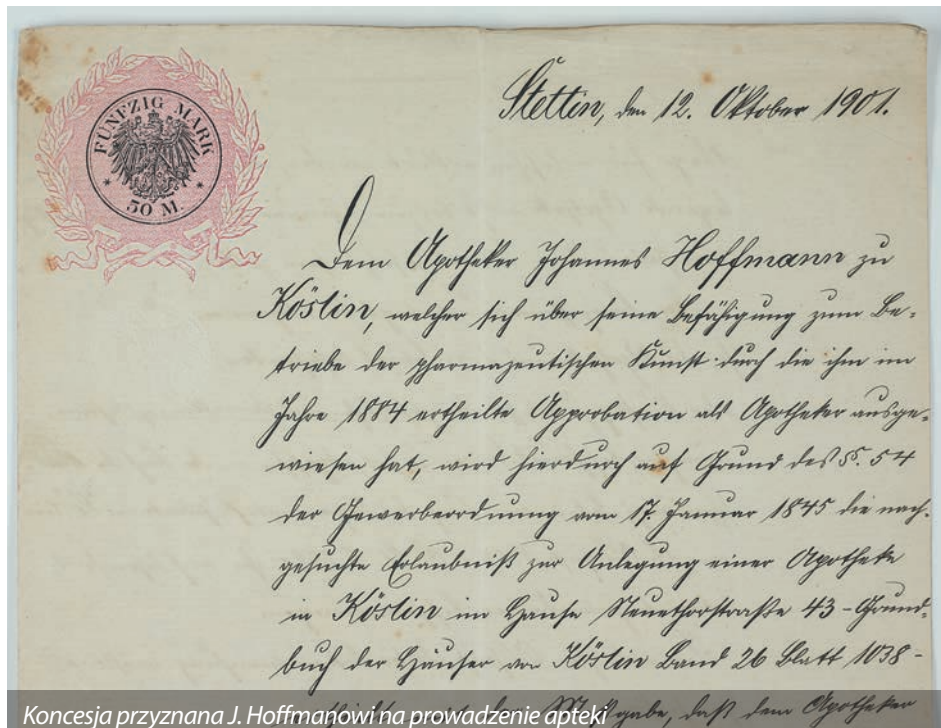 FÜNFZIG MARK
50 M.
Stettin, den 12. Oktober 1901.
Dem Apotheker Johannes Hoffmann zu
Köslin, welcher sich über seine Befähigung zum Be-
triebe der pharmazeutischen Kunst durch die ihm im
Jahre 1884 ertheilte Approbation als Apotheker ausge-
wiesen hat, wird hierdurch auf Grund des §. 54
der Gewerbeordnung vom 17. Januar 1845 die nach-
gesuchte Erlaubniß zur Anlegung einer Apotheke
in Köslin im Hause Neuethorstraße 43 - Grund-
buch der Häuser von Köslin Band 26 Blatt 1038 -
daß dem Apotheker
Koncesja przyznana J. Hoffmanowi na prowadzenie apteki